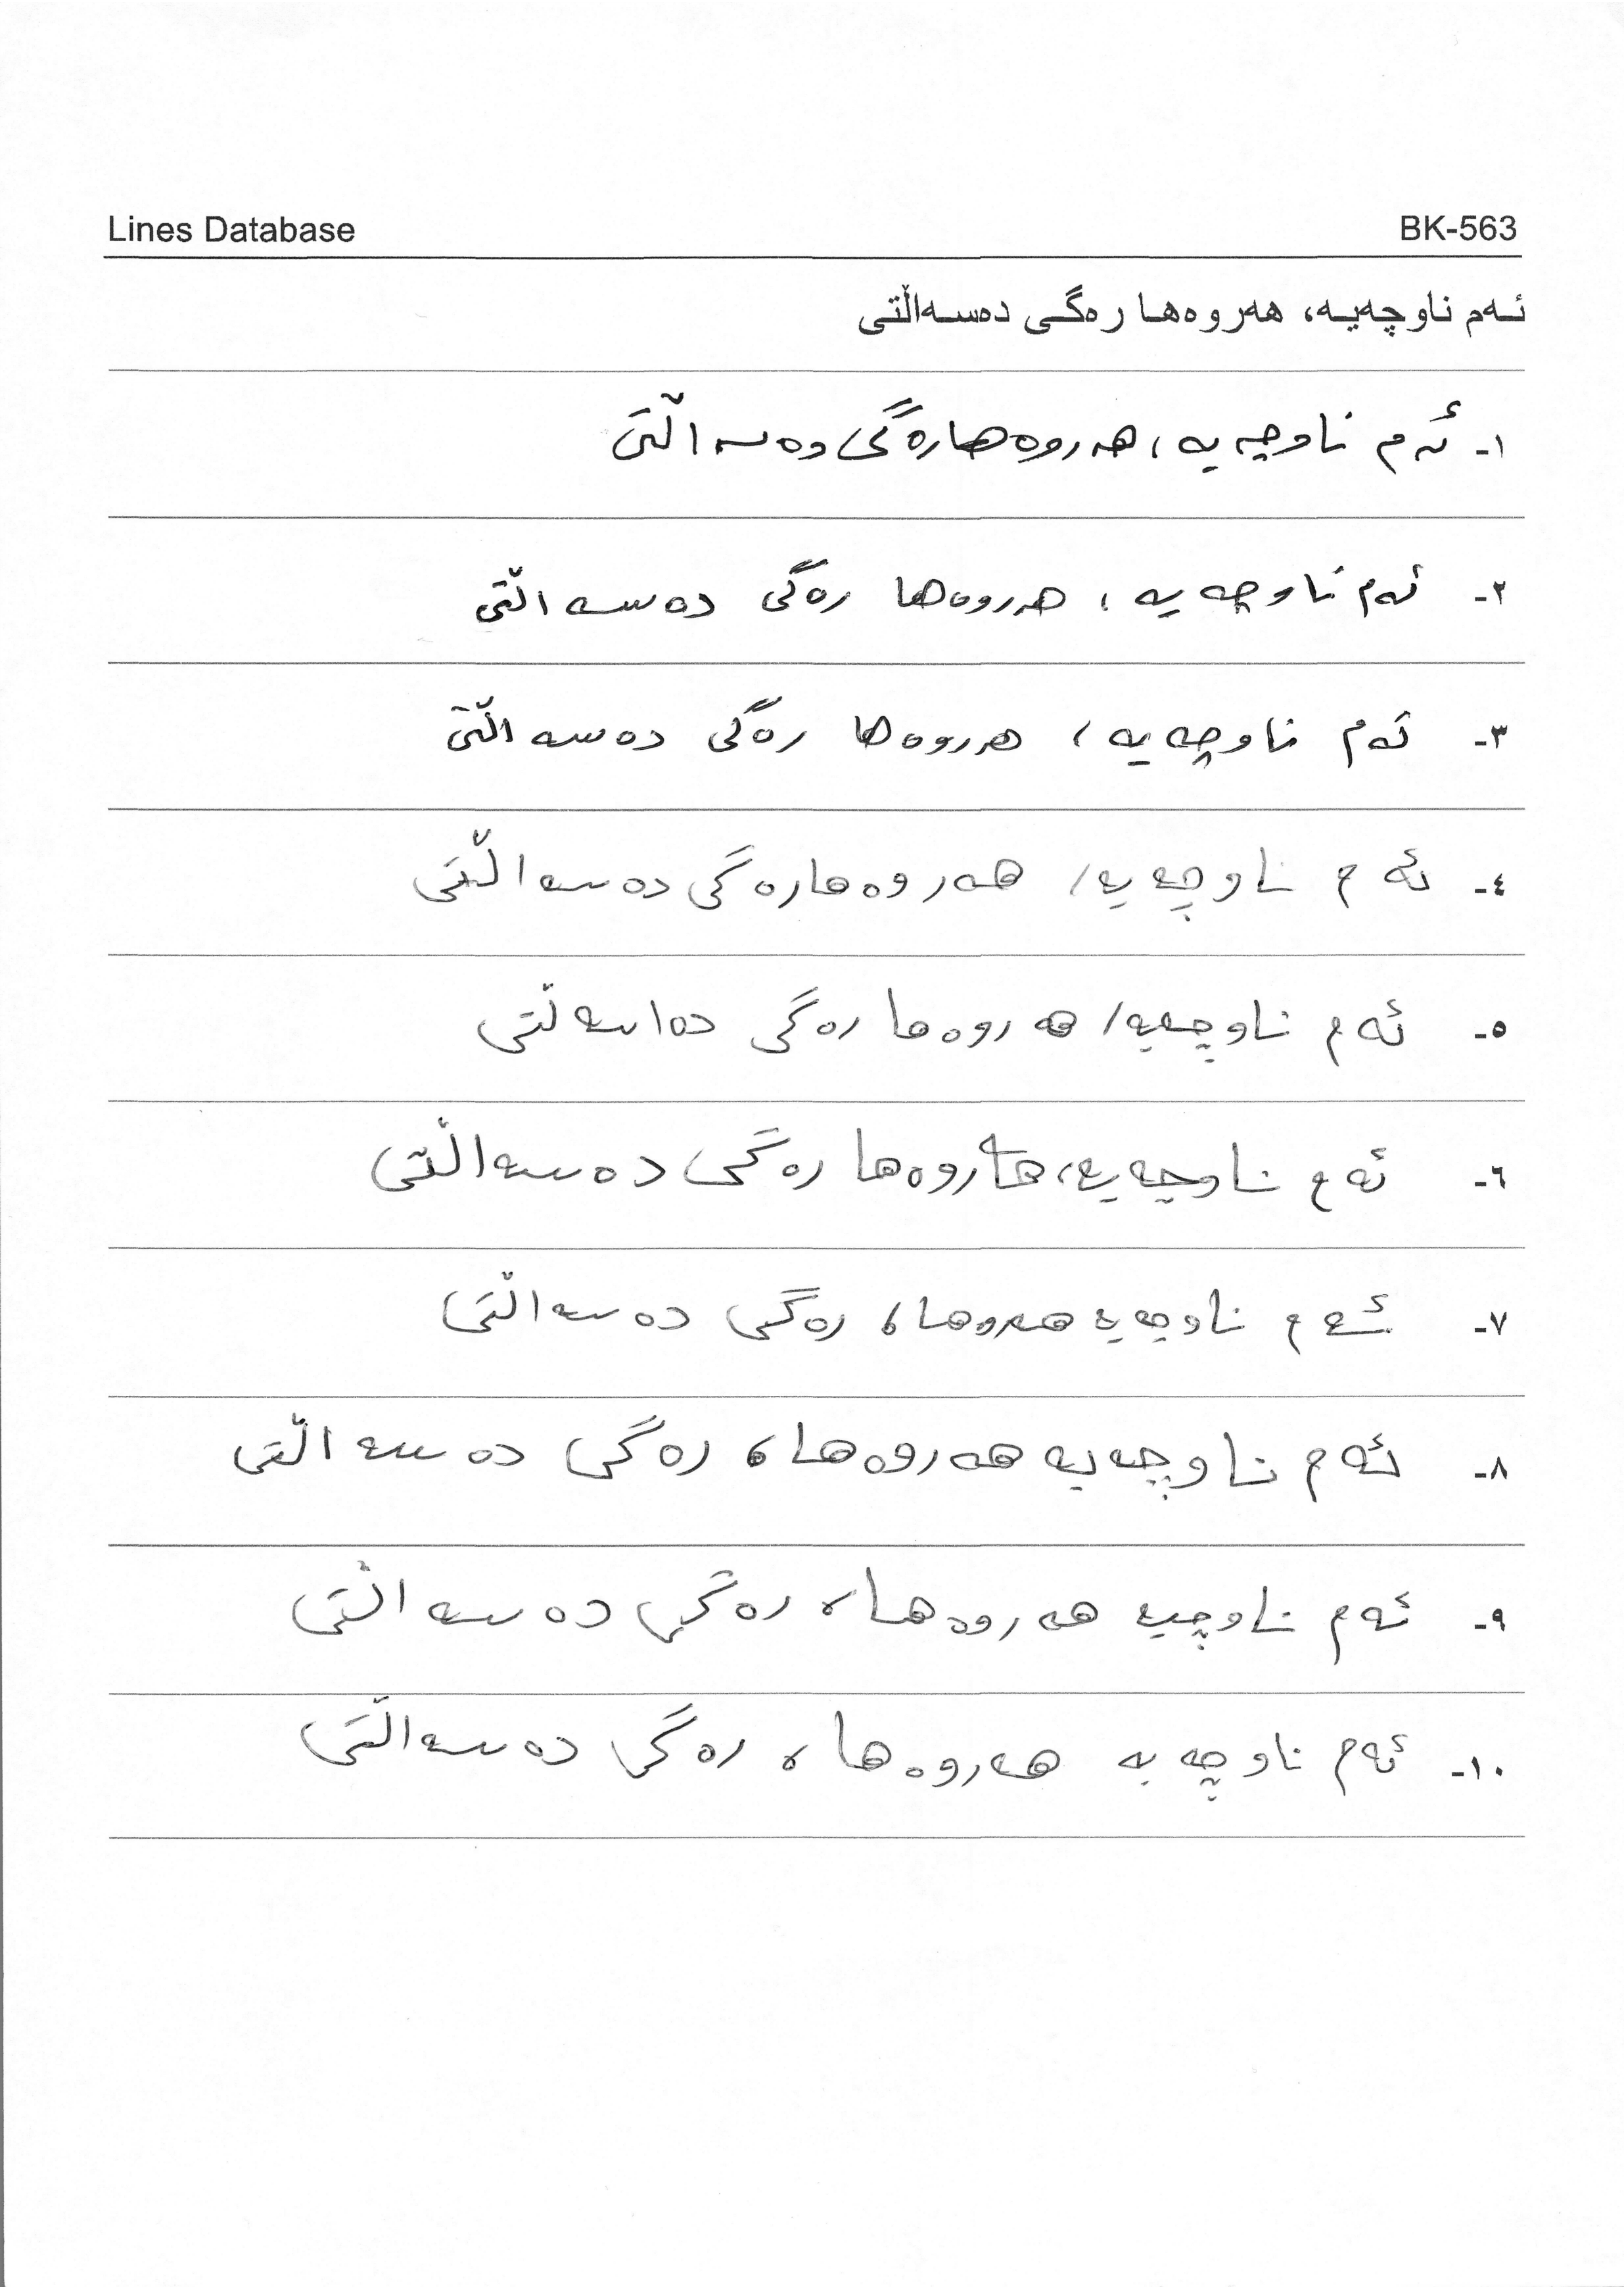 Lines Database BK-563
ئەم ناوچەیە، هەروەها رەگی دەسەاڵتی
١- ئەم ناوچەیە، هەروەها رەگی وەسەاڵتی
٢- ئەم ناوچەیە، هەرووەها رەگی دەسەاڵتی
٣- ئەم ناوچەیە، هەرووەها رەگی دەسەاڵتی
٤- ئەم ناوچەیە/ هەروەها رەگی دەسەاڵتی
٥- ئەم ناوچەیە/ هەروەها رەگی دەاسەڵتی
٦- ئەم ناوچەیە، هەروەها رەگی دەسەاڵتی
٧- ئەم ناوچەیە هەروها، رەگی دەسەاڵتی
٨- ئەم ناوچەیە هەروەها، رەگی دەسەاڵتی
٩- ئەم ناوچیە هەروەها، رەگی دەسەاڵتی
١٠- ئەم ناوچەیە هەروەها، رەگی دەسەاڵتی